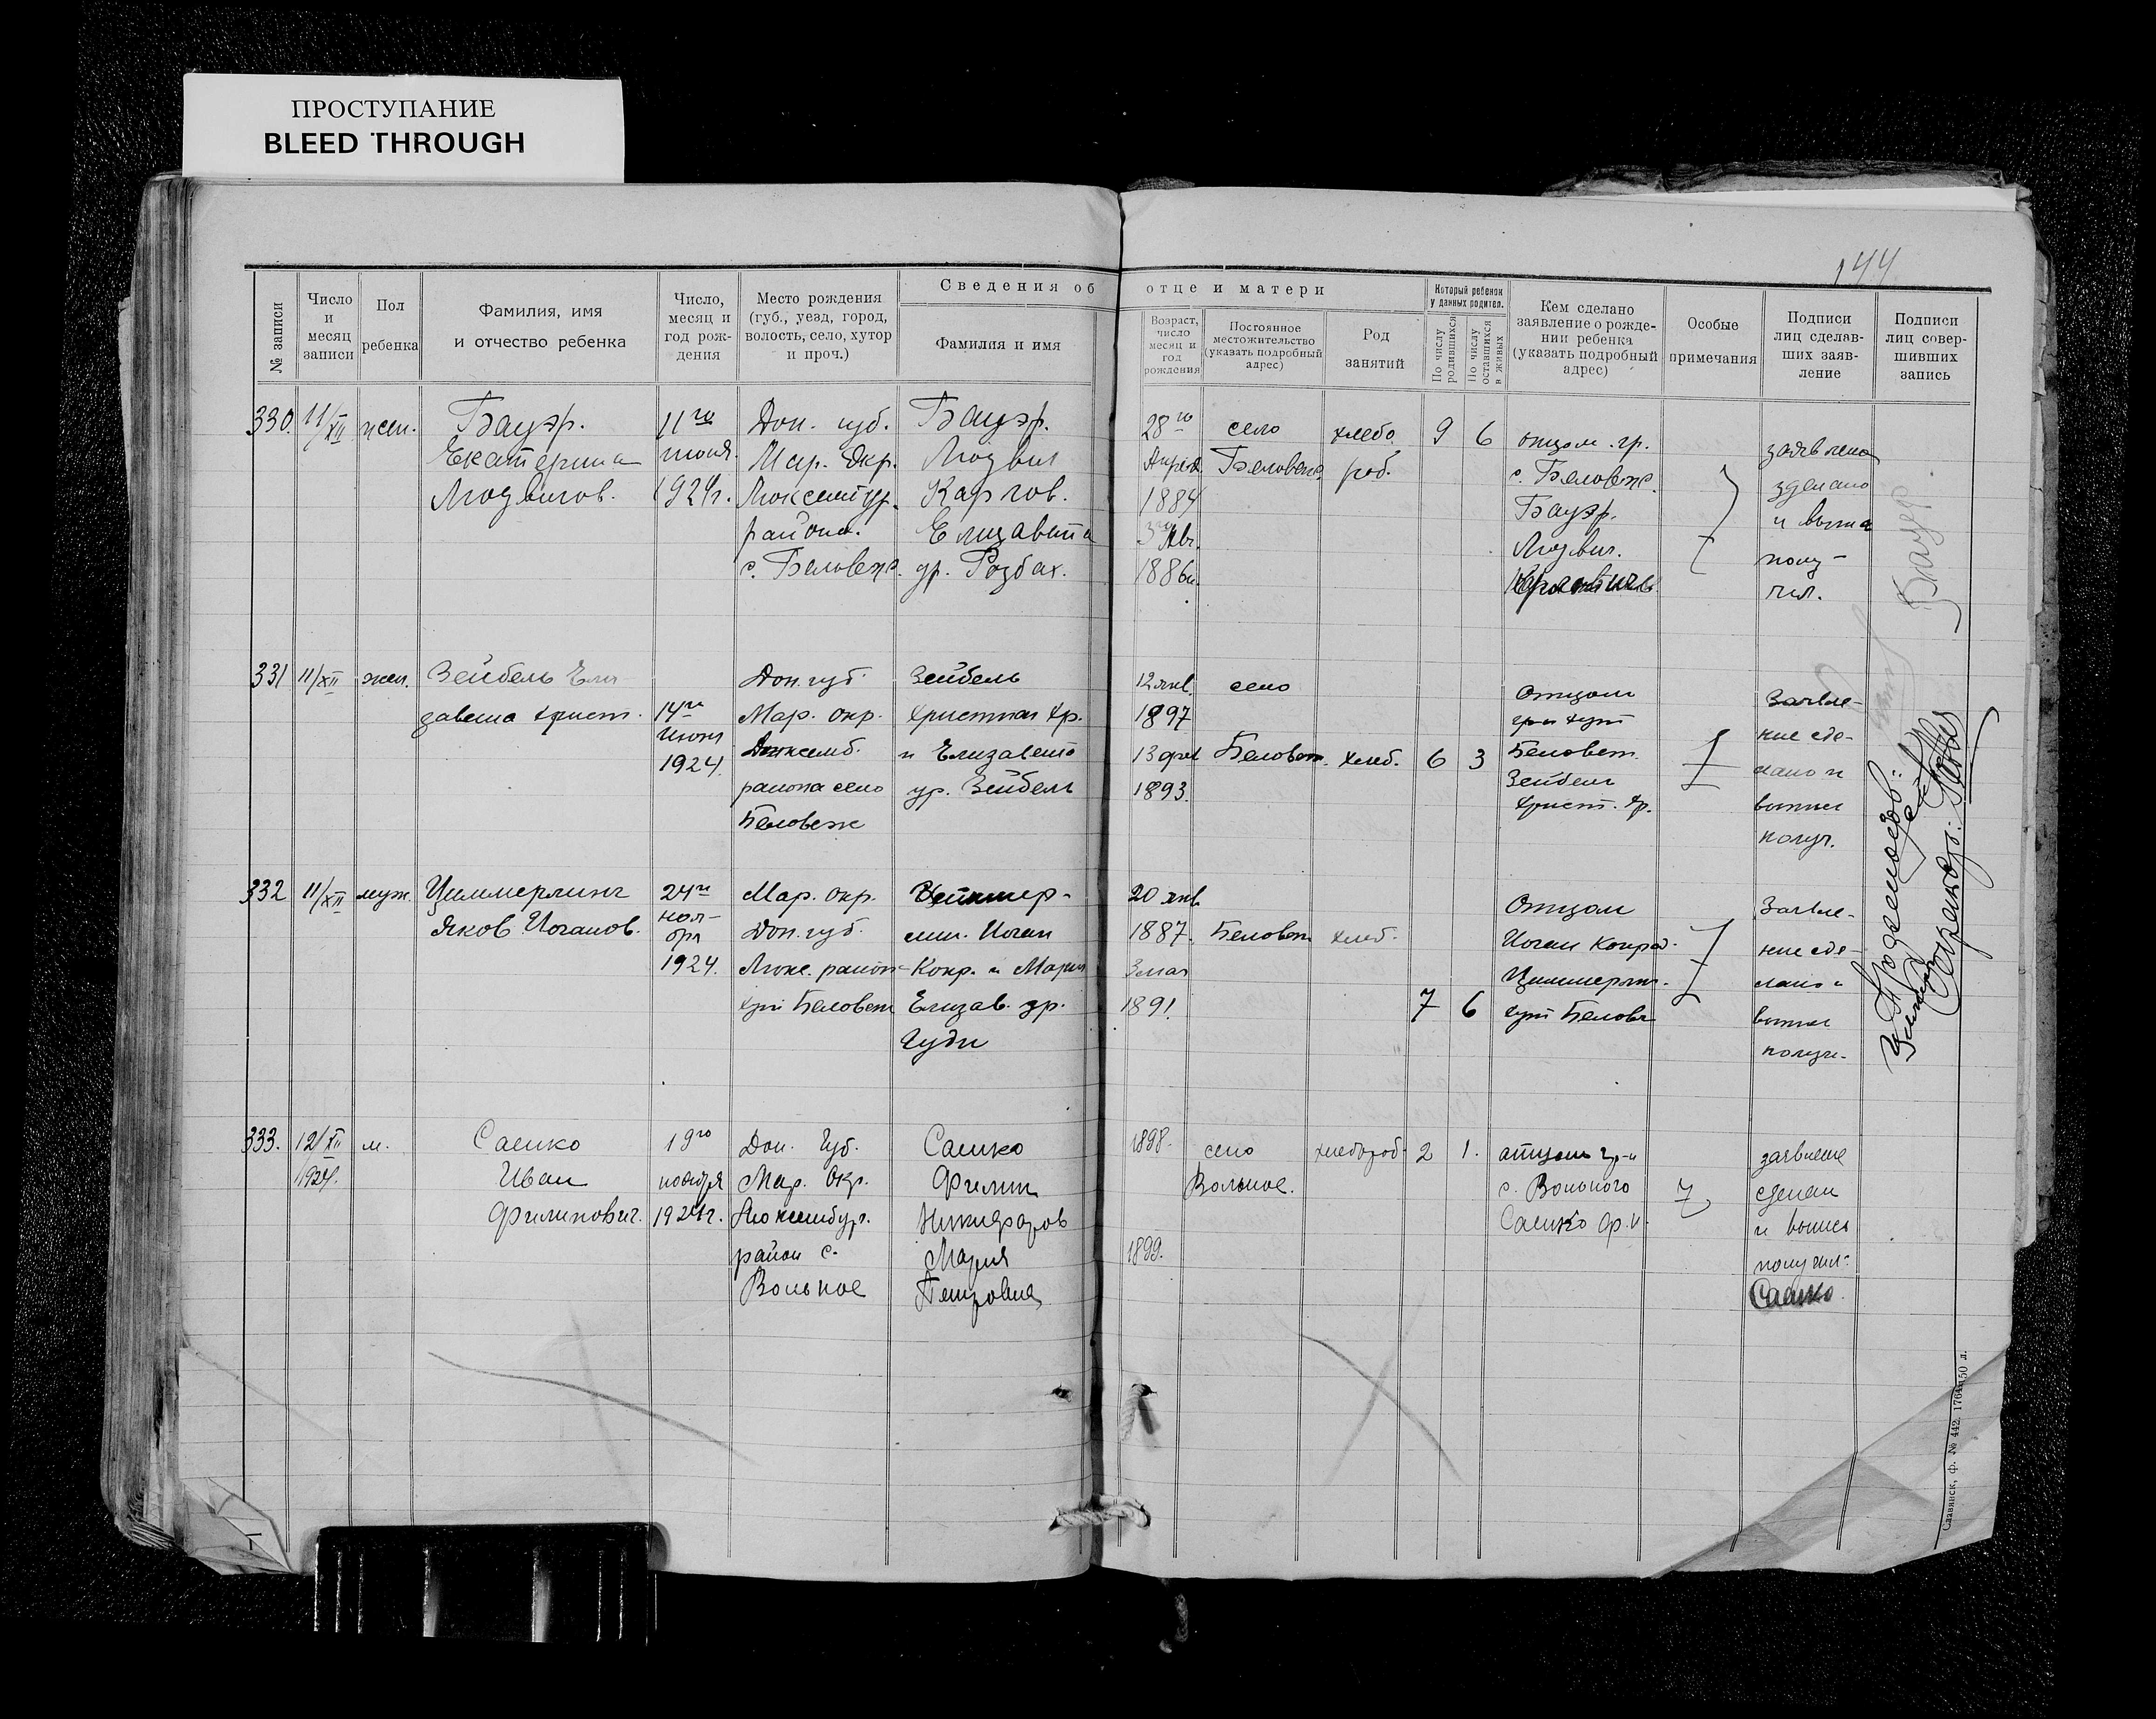 ПРОСТУПАНИЕ
BLEED THROUGH
144
Сведения об отце и матери
№ записи
Число
и
месяц
записи
Пол
ребенка
Фамилия, имя
и отчество ребенка
Число,
месяц и
год рож-
дения
Место рождения
(губ., уезд, город,
волость, село, хутор
и проч.)
Фамилия и имя
Возраст,
число
месяц и
год
рождения
Постоянное
местожительство
(указать подробный
адрес)
Род
занятий
Который ребенок
у данных родител.
По числу
родившихся
По числу
оставшихся
в живых
Кем сделано
заявление о рожде-
нии ребенка
(указать подробный
адрес)
Особые
примечания
Подписи
лиц сделав-
ших заяв-
ление
Подписи
лиц совер-
шивших
запись
330.
11/XII
жен.
Бауэр.
Екатерина
Людвигов.
11го
июня.
1924г.
Дон. губ.
Мар. Окр.
Люксембур.
района.
с. Беловеж.
Бауэр.
Людвиг
Карлов.
Елизавета
ур. Розбах.
28го
Апреля
1884
3го Авг.
1886г.
село
Беловеж.
хлебо
роб.
9
6
отцом гр.
с. Беловеж.
Бауэр.
Людвиг.
заявлено
зделано
и выпис
полу-
чил.
Бауэр
331
11/XII
жен.
Зейбель Ели-
завета Христ.
14го
Июня
1924.
Дон. губ.
Мар. окр.
Люксемб.
района село
Беловеж
Зейбель
Христиан Хр.
и Елизавета
ур. Зейбель
12 янв.
1897
13 фев
1893.
село
Беловеж.
хлеб.
6
3
Отцом
гр-н хут
Беловеж.
Зейбель
Христ. Хр.
Заявле-
ние сде-
лано и
выпис
получ.
332
11/XII
муж.
Циммерлинг
Яков Иоганов.
24го
ноя-
бря
1924.
Мар. окр.
Дон. губ.
Люкс. район
хут Беловеж
Циммер-
линг. Иоган
Конр. и Мария
Елизав. ур.
Гуди
20 янв
1887.
3 мая
1891.
Беловеж
хлеб.
7
6
Отцом
Иоган Конрад.
Циммерлинг.
хут Беловеж
Заявле-
ние сде-
лано и
выпис
получ.
333.
12/XII
1924.
м.
Саенко
Иван
Филипович.
19го
ноября
1924г.
Дон. Губ.
Мар. Окр.
Люксембург.
район с.
Вольное
Саенко
Филип
Никифоров
Мария
Петровна
1898.
1899.
село
Вольное.
хлебороб.
2
1.
отцом гр-н
с. Вольного
Саенко Ф. Н.
заявление
сделан
и выпись
получил:
Саенко
Славянск, ф. № 442. 1764-150 л.